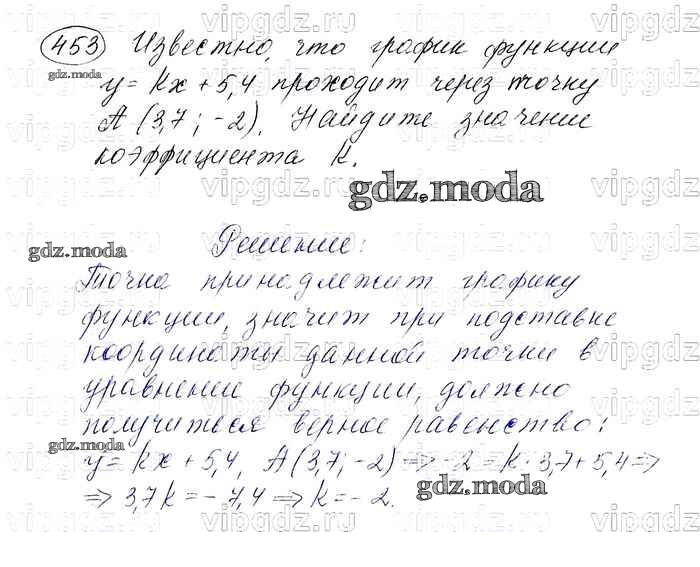 453 Известно, что график функции
y = kx + 5,4 проходит через точку
A (3,7 ; -2). Найдите значение
коэффициента k.
gdz.moda
Решение:
Точка принадлежит графику
функции, значит при подставке
координаты данной точки в
уравнение функции, должно
получиться верное равенство:
y = kx + 5,4, A(3,7; -2) => -2 = k · 3,7 + 5,4 =>
=> 3,7k = -7,4 => k = -2.
gdz.moda
gdz.moda
gdz.moda
gdz.moda
vipgdz.ru